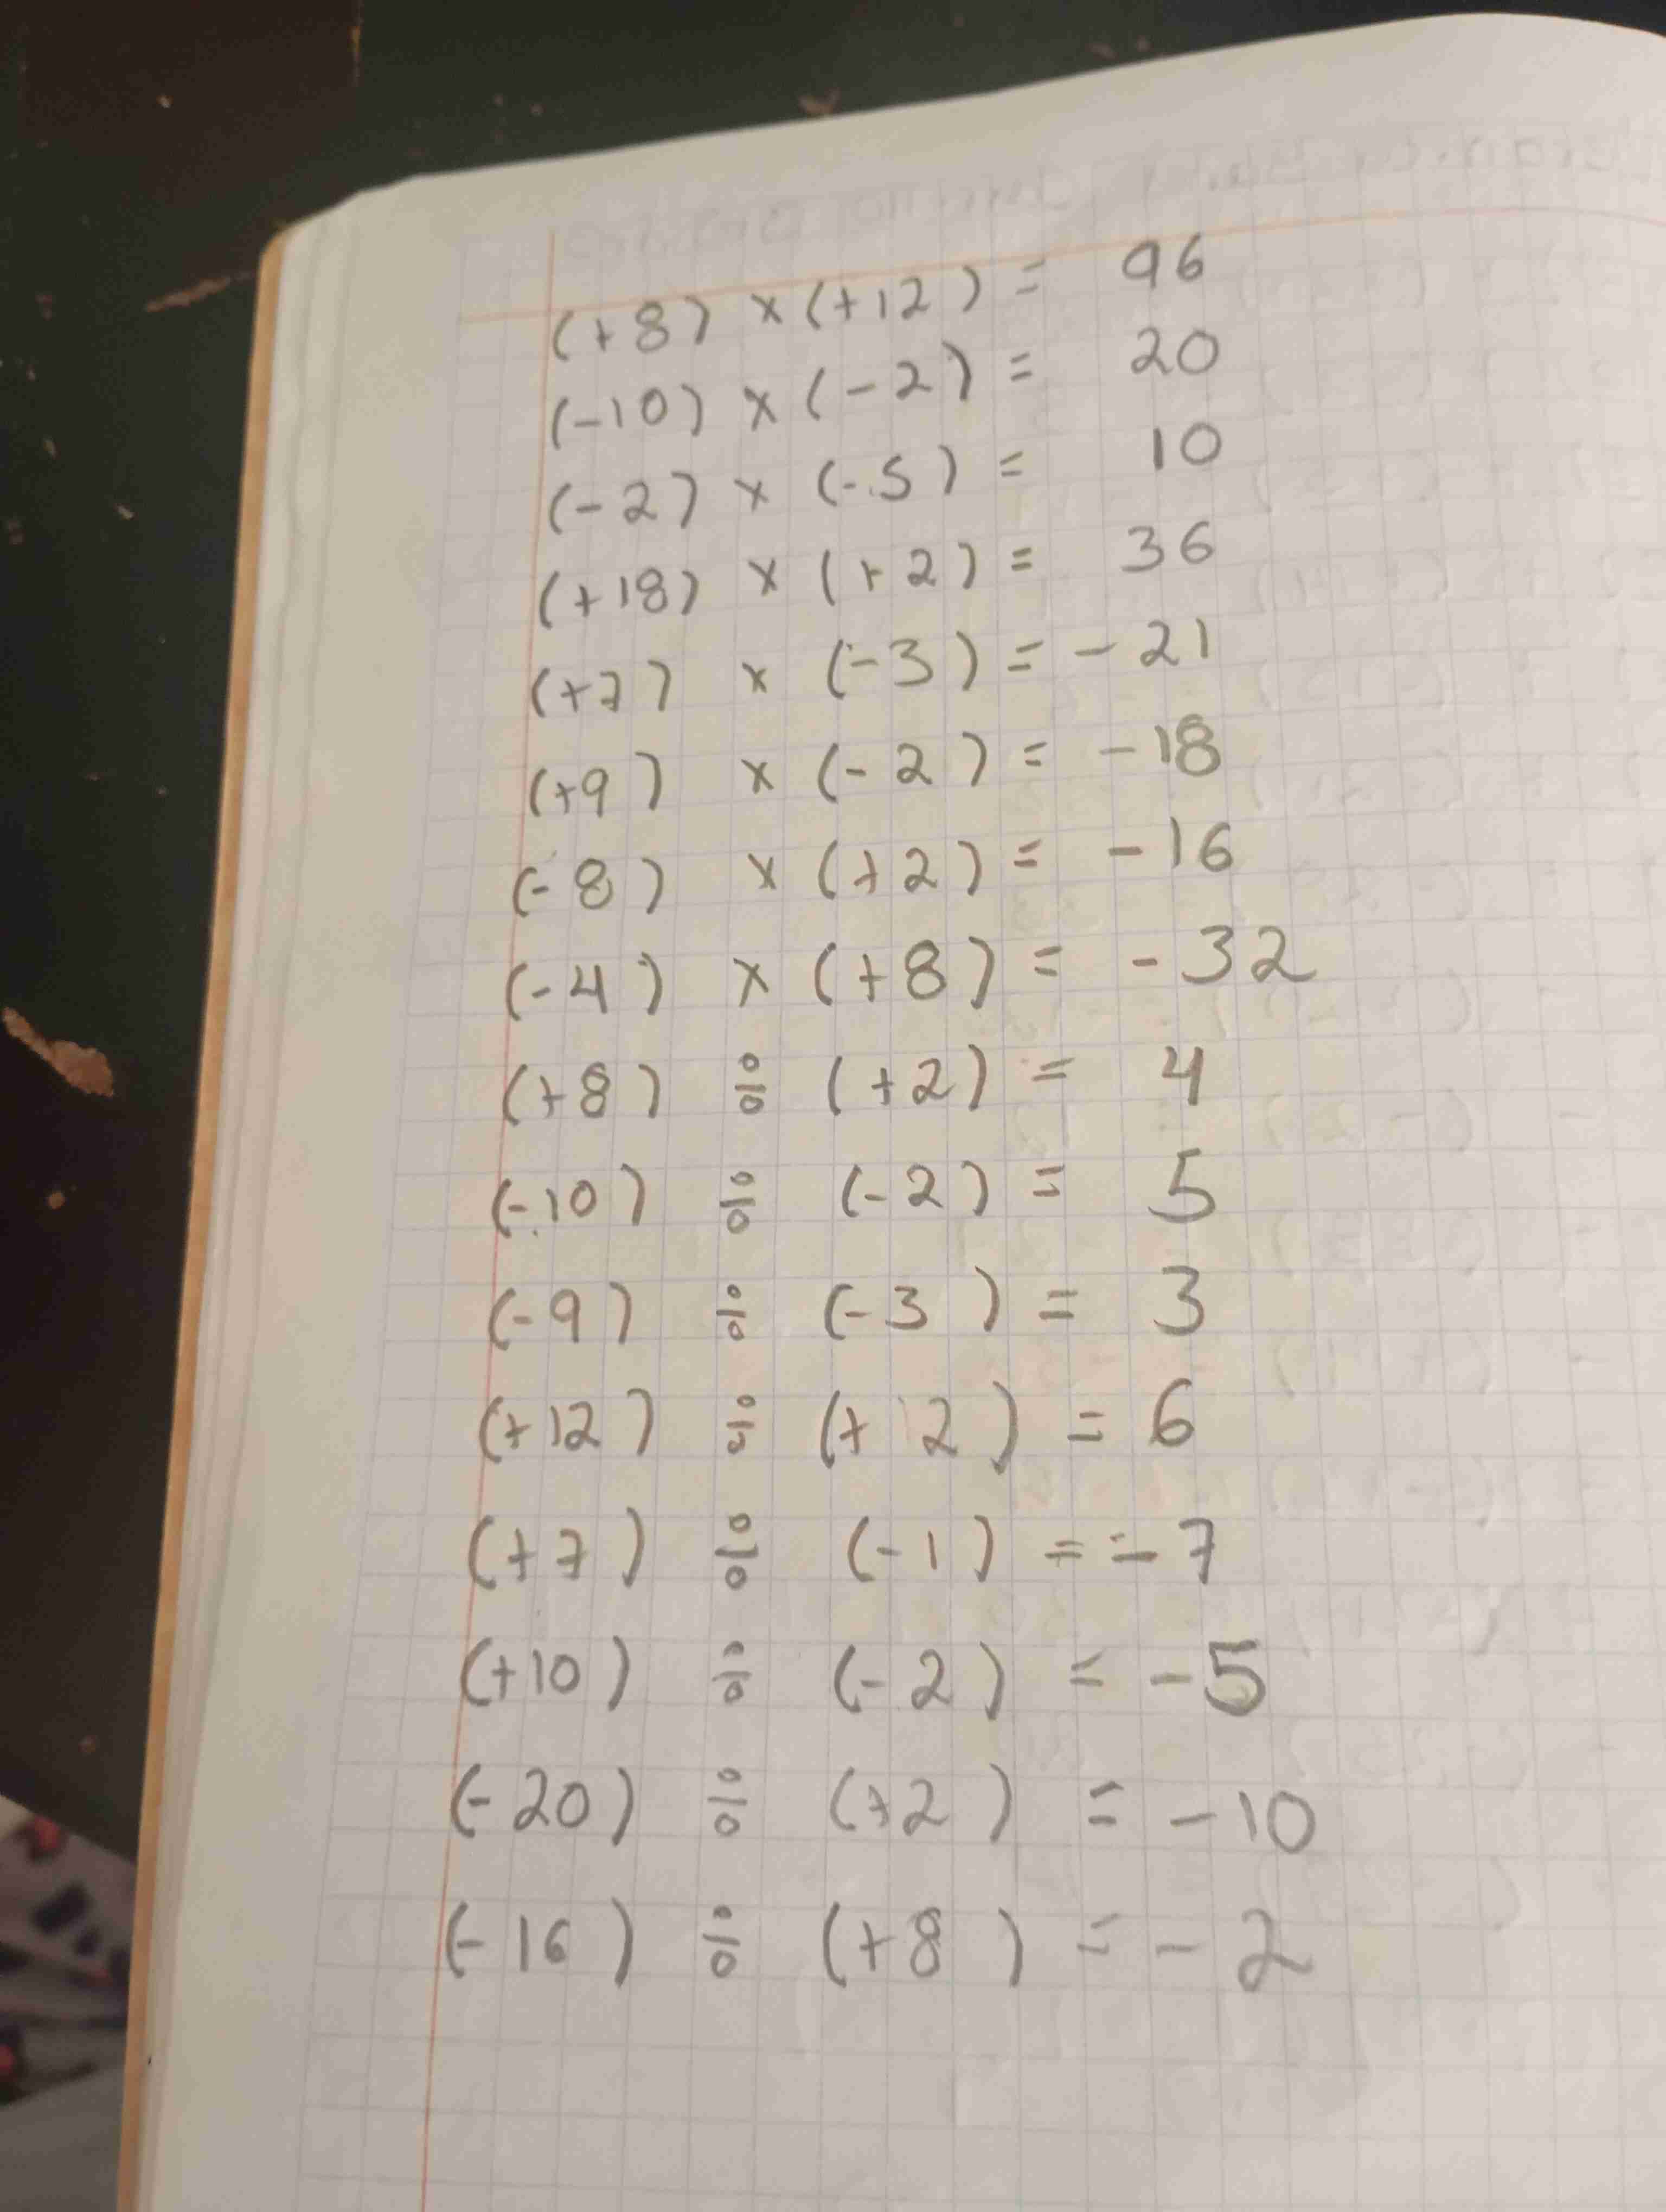 (+8) × (+12) = 96
(-10) × (-2) = 20
(-2) × (-5) = 10
(+18) × (+2) = 36
(+7) × (-3) = -21
(+9) × (-2) = -18
(-8) × (+2) = -16
(-4) × (+8) = -32
(+8) ÷ (+2) = 4
(-10) ÷ (-2) = 5
(-9) ÷ (-3) = 3
(+12) ÷ (+2) = 6
(+7) ÷ (-1) = -7
(+10) ÷ (-2) = -5
(-20) ÷ (+2) = -10
(-16) ÷ (+8) = -2